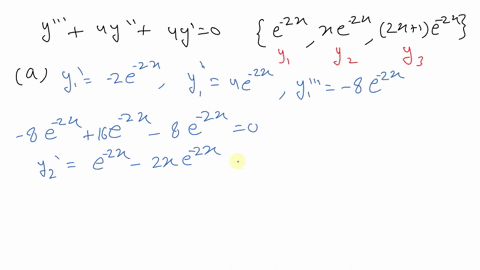 y''' + 4y'' + 4y' = 0 { e^{-2x}, xe^{-2x}, (2x+1)e^{-2x} }
y₁ y₂ y₃
(a) y₁' = -2e^{-2x}, y₁' = 4e^{-2x}, y₁''' = -8e^{-2x}
-8e^{-2x} + 16e^{-2x} - 8e^{-2x} = 0
y₂' = e^{-2x} - 2xe^{-2x}